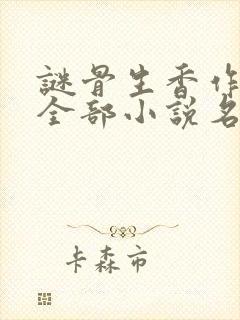 謎骨生香作
全部小説名
卡森市